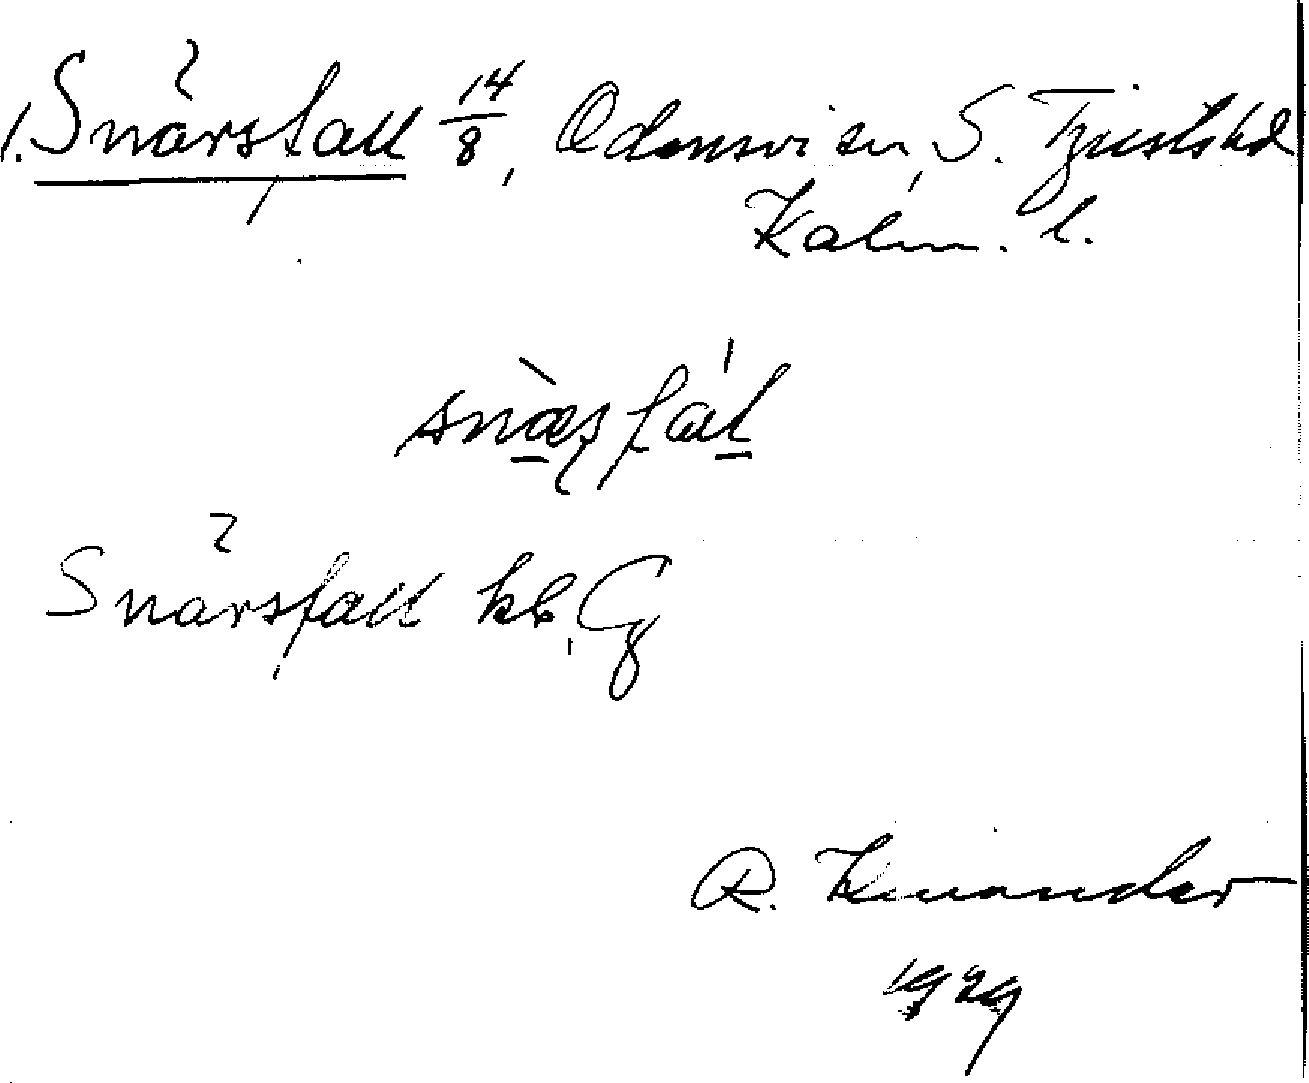 1. Snärsfall 14/8, Odensvi sn, S. Tjusts hd
Kalm. l.
snæsfal
Snärsfall kb, Cg
R. Kinander
1929